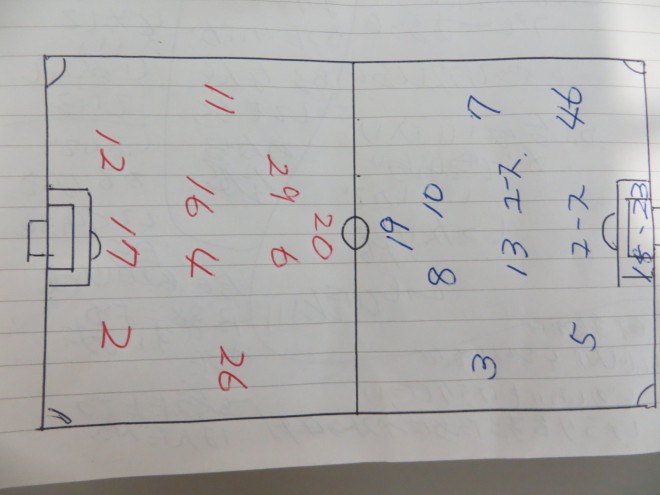 12 17 2
11 16 4 26
29 6
20
19
10 8
7 13 3
46 5
18-23